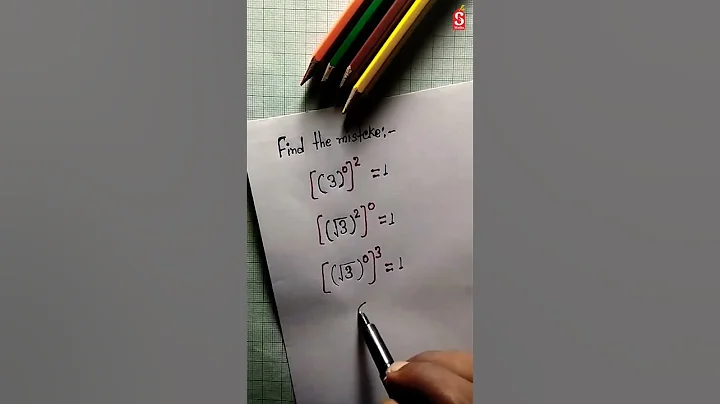 Find the mistake:-
[(3)⁰]² = 1
[(√3)²]⁰ = 1
[(√3)⁰]³ = 1